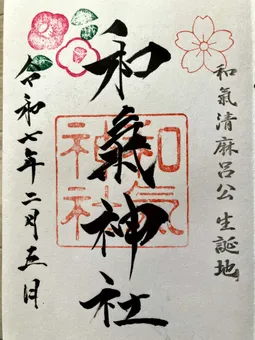 和氣清麻呂公生誕地
和氣神社
和氣
神社
令和七年二月三日